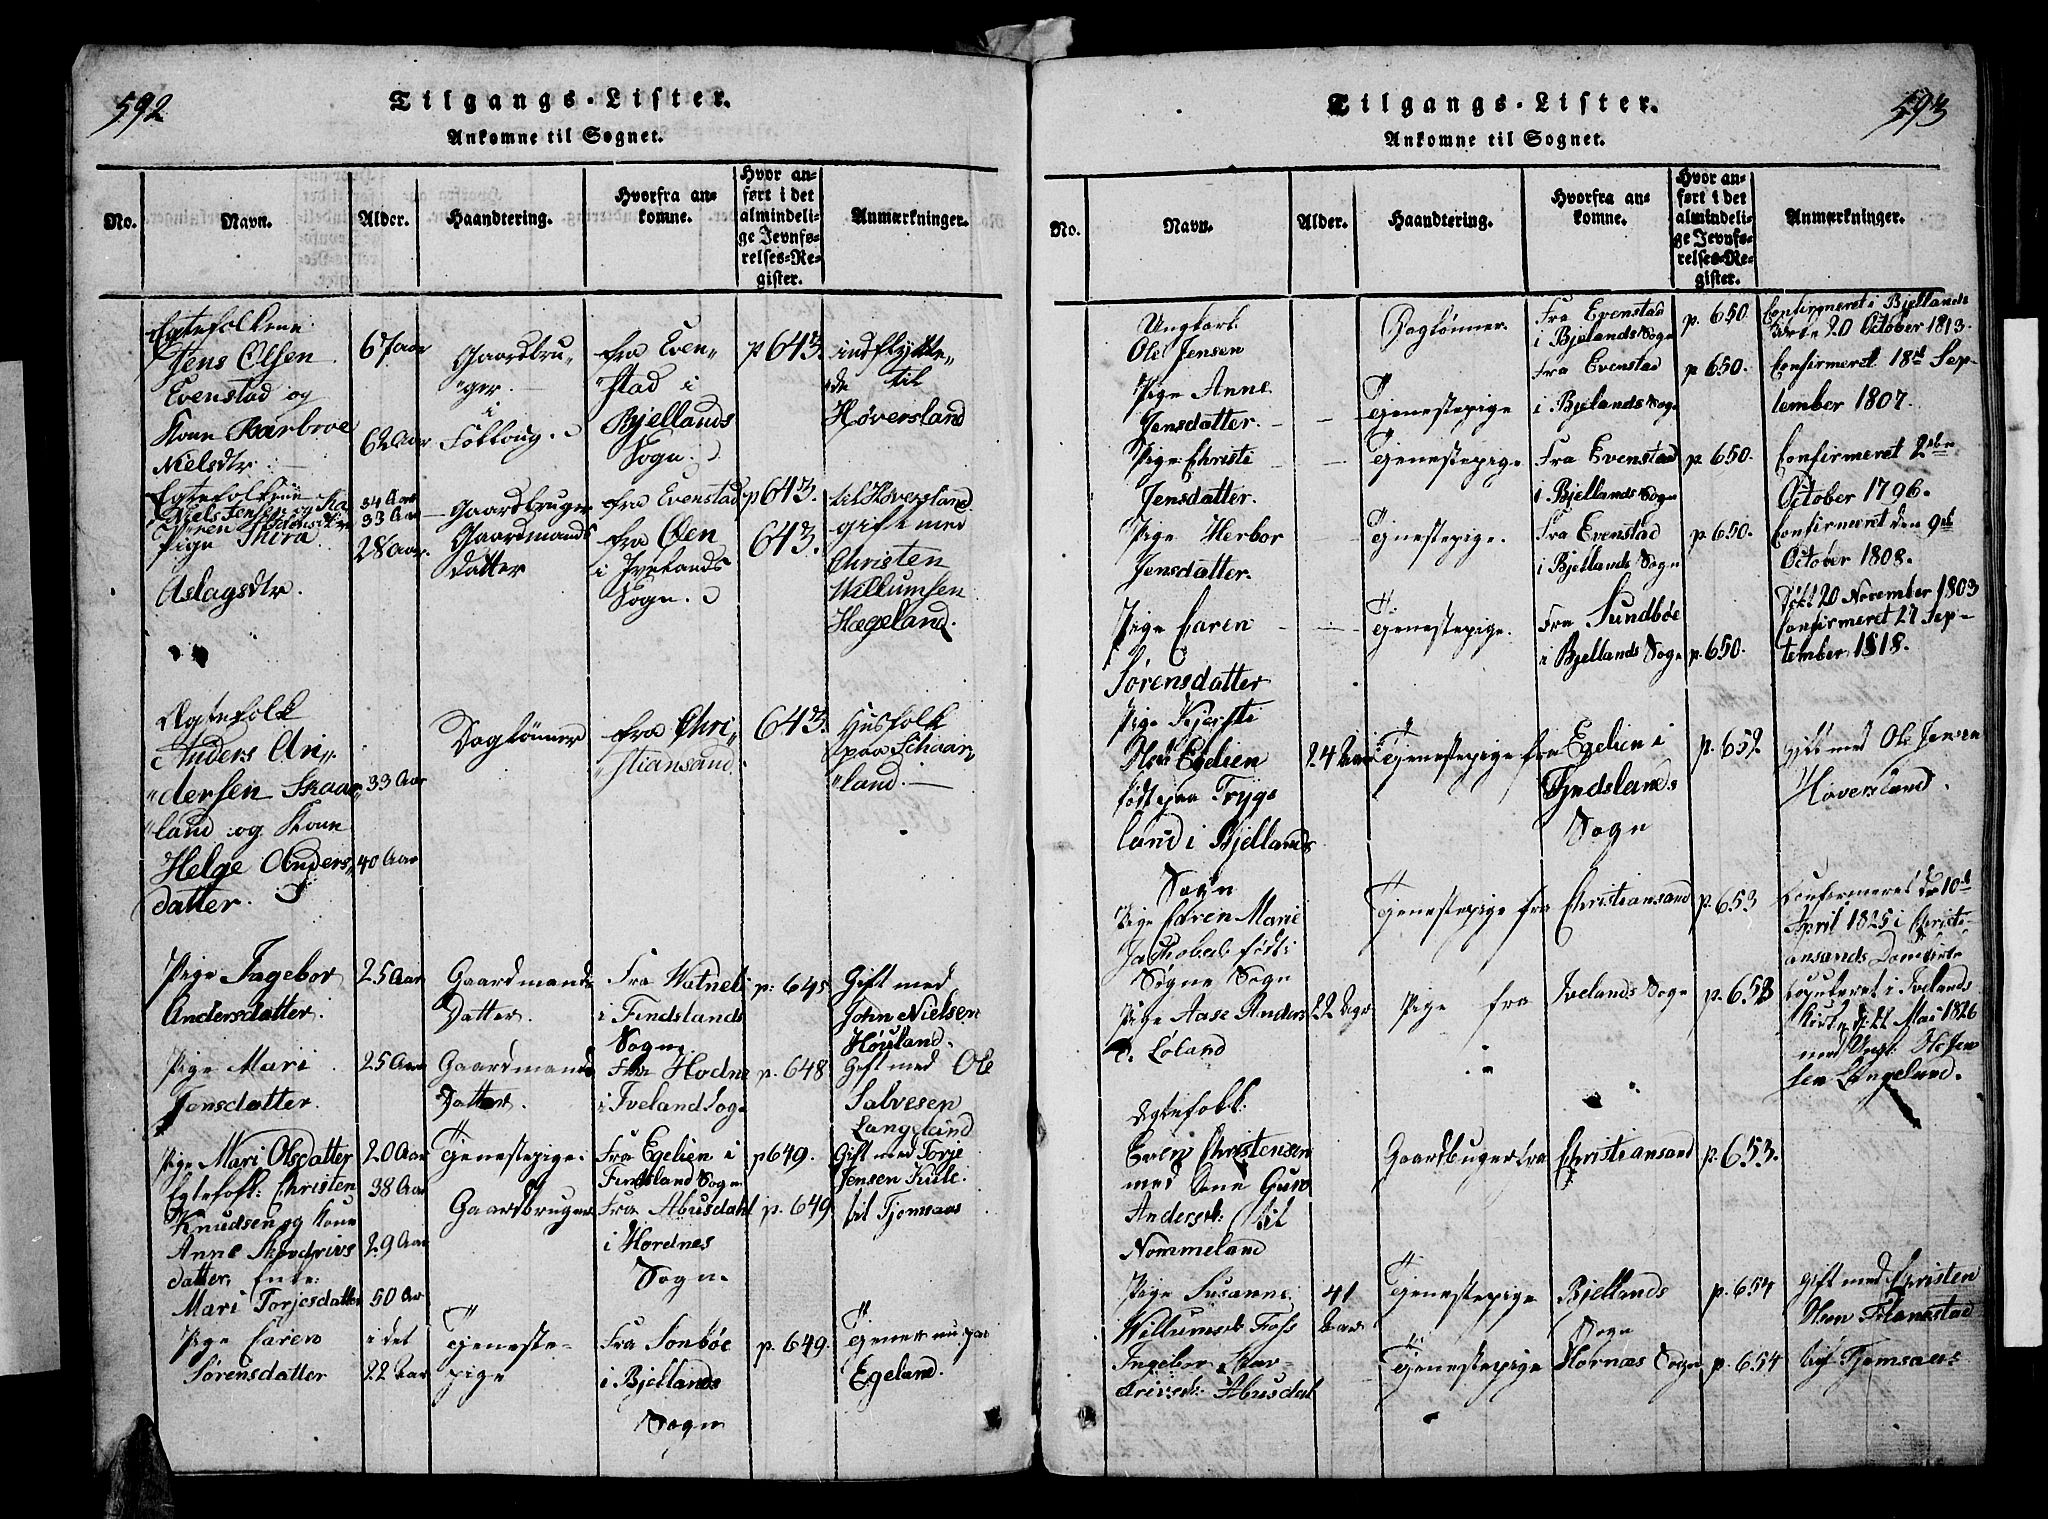 592
Tilgangs-Lister.
Ankomne til Sognet.
No.
Navn.
Alder.
Haandtering.
Hvorfra an-
komne.
Hvor an-
ført i det
almindeli-
ge Jevnfø-
relses-Re-
gister.
Anmærkninger.
Egtefolkene
Jens Olsen
Evenstad og
Kone Barbroe
Nielsdtr.
67 aar
62 Aar
Gaardbru-
ger.
i
fra Even-
stad i
Bjellands
Sogn.
p 643.
indflytte-
de til
Høversland
Egtefolkene
Niels Jensen og Ka
34 Aar
33 Aar
Gaardbruger
fra Evenstad
p 643.
til Høversland
Pige Thira
Aslagsdtr.
28 Aar.
Gaardmands
Datter
fra Øen
i Ivelands
Sogn.
643.
gift med
Christen
Willumsen
Hægeland.
Ægtefolk
Anders An-
dersen Skaar
land og Kone
Helge Anders
datter.
33 Aar
40 Aar
Daglønner
fra Chri
stiansand.
643.
Husfolk
paa Schaar
land.
Pige Ingebor
Andersdatter.
25 Aar
Gaardmands
Datter.
Fra Watneli
i Findslands
Sogn.
p. 645
Gift med
John Nielsen
Høiland.
Pige Mari
Jensdatter.
25 Aar
Gaardmands
Datter.
Fra Hodne
i Iveland Sogn
p. 648
Gift med Ole
Salvesen
Langeland
Pige Mari Olsdatter
20 Aar
Tjenestepige.
Fra Egelien i
Findsland Sogn
p 649.
Gift med Torje
Jensen Kule.
Egtefolk: Christen
Knudsen og Kone
Anne Skovdrivs
datter. Enke:
Mari Torjesdatter
38 Aar
29 Aar
50 Ar
Gaardbruger
Fra Abusdahl
i Hordnes
Sogn.
p. 649
til Tjomsaas
Pige Caren
Sørensdatter
i det
22 Aar
Tjeneste-
pige
Fra Sonbøe
i Bjellands
Sogn
p. 649.
Tjener nu paa
Egeland.
593
Tilgangs-Lister.
Ankomne til Sognet.
No.
Navn.
Alder.
Haandtering.
Hvorfra an-
komne.
Hvor an-
ført i det
almindeli-
ge Jevnfø-
relses-Re-
gister.
Anmærkninger.
Ungkarl
Ole Jensen
Daglønner.
Fra Evenstad
i Bjelands Sogn
p. 650.
Confirmeret i Bjellands
Kirke 20 October 1813.
Pige Anne
Jensdatter.
Tjenestepige
Fra Evenstad
i Bjelands Sogn
p. 650.
Confirmeret 18de Sep-
tember 1807.
Pige Christi
Jensdatter.
Tjenestepige
Fra Evenstad
i Bjellands Sogn
p. 650.
Confirmeret 2den
October 1796.
Pige Herbor
Jensdatter.
Tjenestepige.
Fra Evenstad
i Bjellands Sogn
p. 650.
Confirmeret den 9de
October 1808.
Pige Caren
Sørensdatter
Tjenestepige.
Fra Sundbøe
i Bjellands Sogn
p. 650.
Døbt 20 November 1803
Confirmeret 27 Sep-
tember 1818.
Pige Kjersti
Olsd. Egelien
født paa Trygs
land i Bjellands
Sogn
24 Aar
Tjenestepige fra
Egelien i
Fyndslands
Sogn
p. 652
gift med Ole Jensen
Høversland.
Pige Caren Marie
Jacobsd. født i
Søgne Sogn
Tjenestepige fra
Christiansand
p. 653
Confirmeret d. 10de
April 1825 i Christi-
ansands Domkirke
Pige Aase Anders
d. Loland
22 Aar
Pige fra
Ivelands Sogn
p. 653
Copuleret i Ivelands
Kirke d. 22 Mai 1826
med Ungk.
Langeland.
Egtefolk:
Even Christensen
med Kone Guro
Andersd: til
Nommeland
Gaardbruger fra
Christiansand
p. 653.
Pige Susanne
Willumsd. Foss
41
Aar
Tjenestepige
Bjellands
Sogn
p. 654
Gift med Christen
Olsen Flanestad
Ingebor Skov-
drivsd. Abusdal
Tjenestepige
Hornæs Sogn
p. 654
Tjomsaas